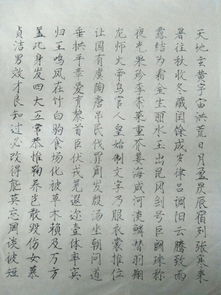 天地玄黄宇宙洪荒日月盈昃辰宿列张寒来
暑往秋收冬藏闰余成岁律吕调阳云腾致雨
露结为霜金生丽水玉出昆冈剑号巨阙珠称
夜光果珍李柰菜重芥姜海咸河淡鳞潜羽翔
龙师火帝鸟官人皇始制文字乃服衣裳推位
让国有虞陶唐吊民伐罪周发殷汤坐朝问道
垂拱平章爱育黎首臣伏戎羌遐迩壹体率宾
归王鸣凤在竹白驹食场化被草木赖及万方
盖此身发四大五常恭惟鞠养岂敢毁伤女慕
贞洁男效才良知过必改得能莫忘罔谈彼短